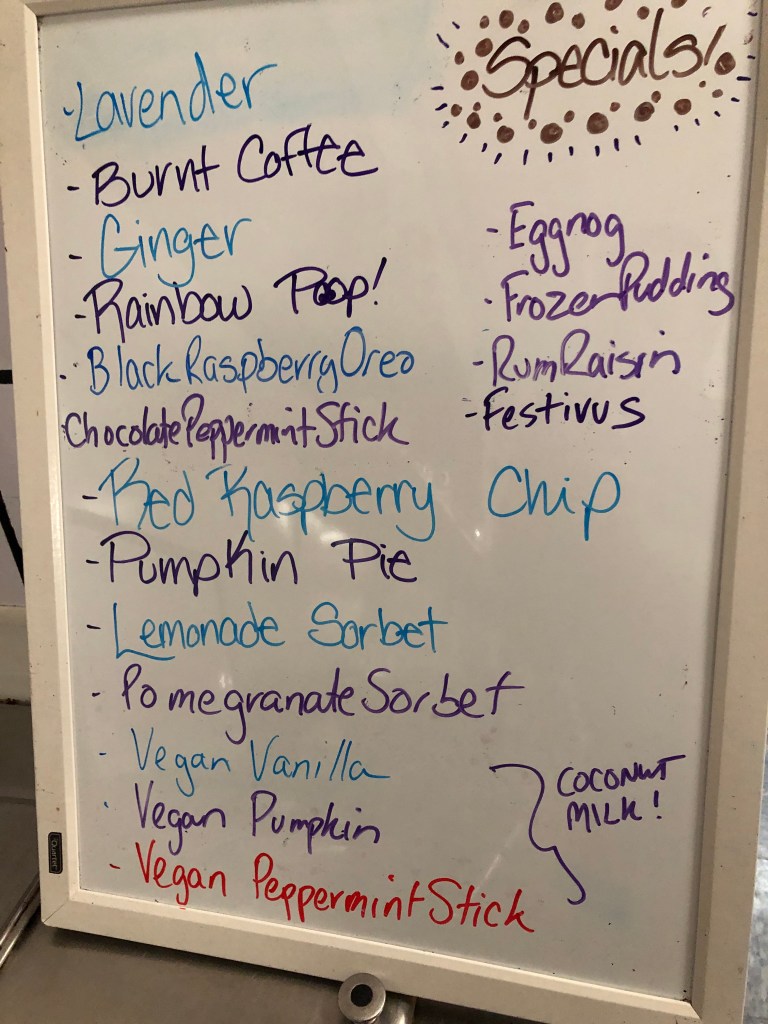 Specials!
-Lavender
- Burnt Coffee
- Ginger
- Rainbow Poop!
- Black Raspberry Oreo
Chocolate Peppermint Stick
- Red Raspberry Chip
- Pumpkin Pie
- Lemonade Sorbet
- Pomegranate Sorbet
- Vegan Vanilla
- Vegan Pumpkin
- Vegan Peppermint Stick
COCONUT
MILK!
- Eggnog
- Frozen Pudding
- Rum Raisin
- Festivus
Quartet